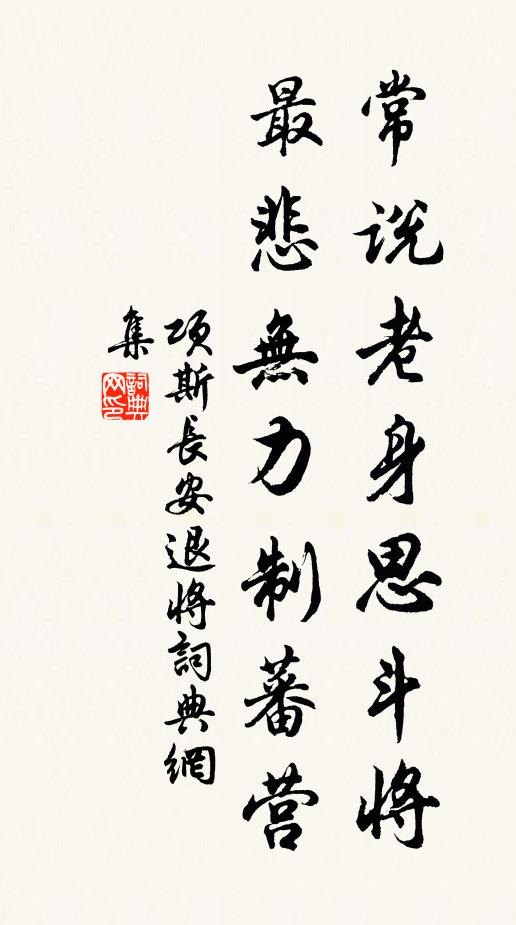 常説老身思斗將
最悲無力制蕃营
項斯長安退將詞典網
集
詞典网印